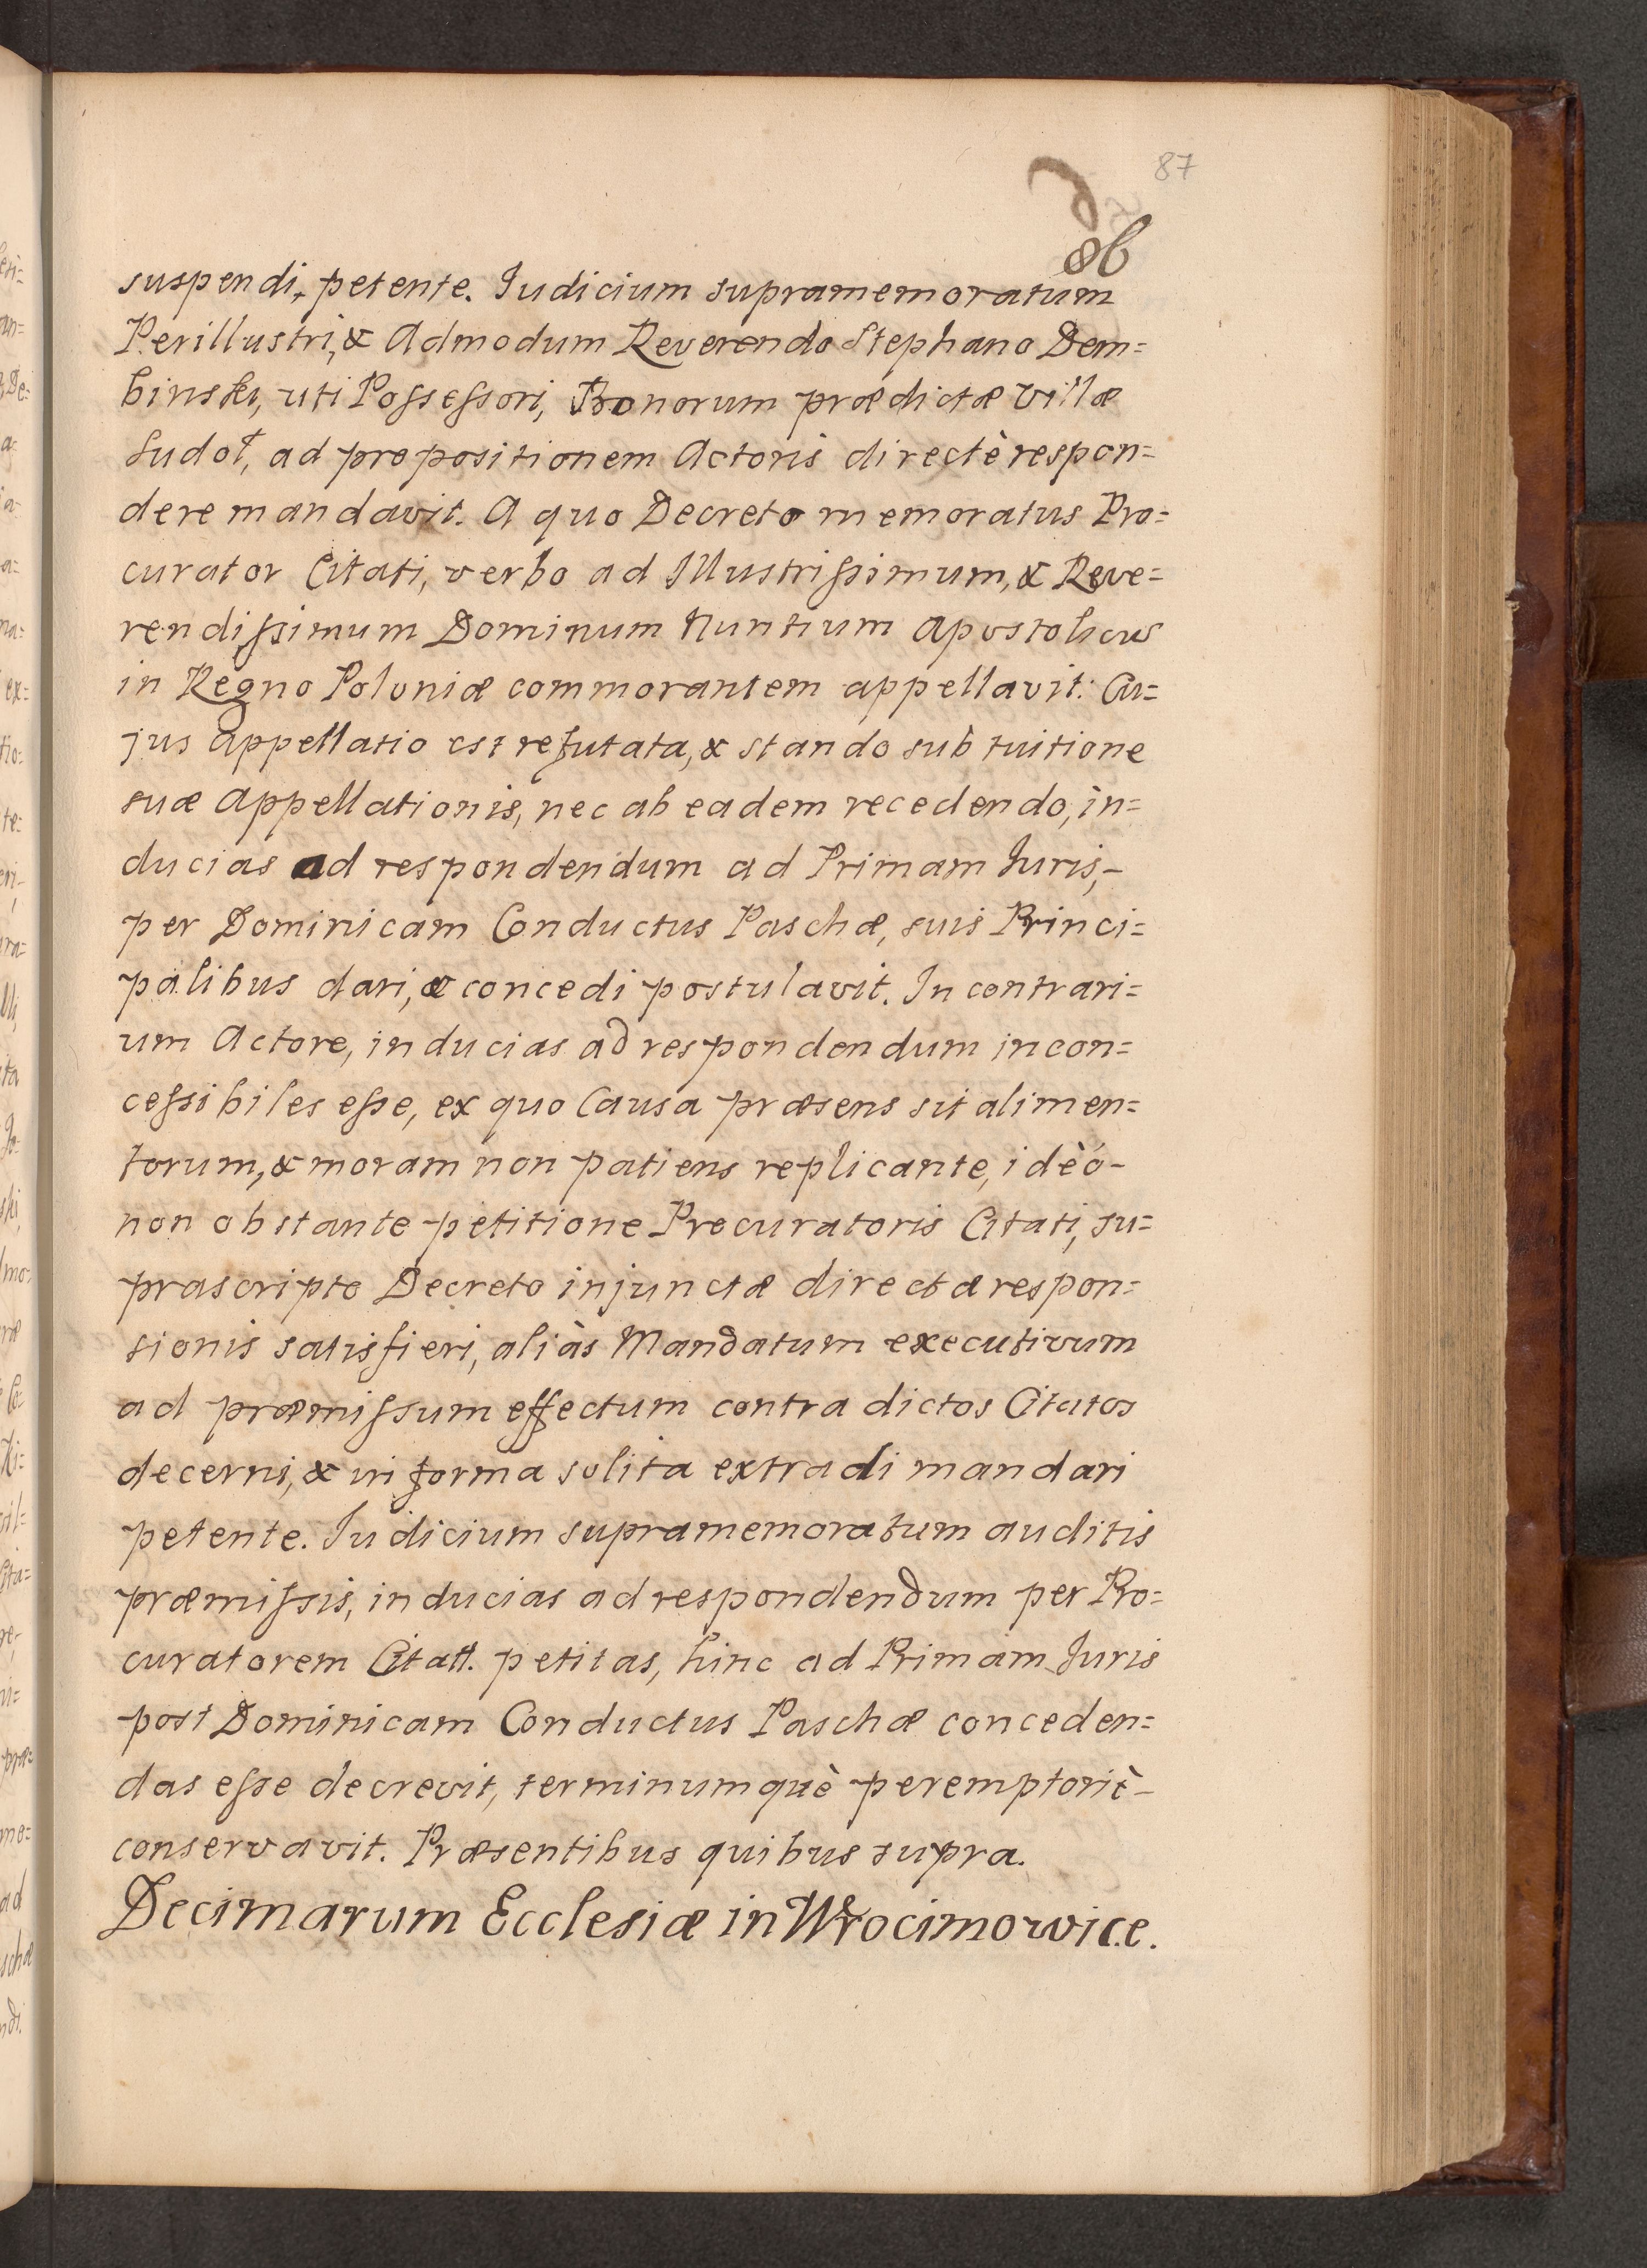 87
86
suspendi, petente. Iudicium supramemoratum
Perillustri, & Admodum Reverendo Stephano Dem=
binski, uti Possessori, Bonorum prædictæ Villæ
Sudoł, ad propositionem Actoris directè respon=
dere mandavit. A quo Decreto memoratus Pro=
curator Citati, verbo ad Illustrissimum, & Reve=
rendissimum Dominum Nuntium Apostolicũ
in Regno Poloniæ commorantem appellavit: Cu=
jus appellatio est refutata, & stando sub tuitione
suæ Appellationis, nec ab eadem recedendo, in=
ducias ad respondendum ad Primam Iuris,-
per Dominicam Conductus Paschæ, suis Princi=
palibus dari, & concedi postulavit. In contrari=
um Actore, inducias ad respondendum incon=
cessibiles esse, ex quo Causa præsens sit alimen=
torum, & moram non patiens replicante, ideò-
non obstante petitione Procuratoris Citati, su=
prascripto Decreto injunctæ directæ respon=
sionis satisfieri, aliàs Mandatum executivum
ad præmissum effectum contra dictos Citatos
decerni, & in forma solita extradi mandari
petente. Iudicium supramemoratum auditis
præmissis, inducias ad respondendum per Pro=
curatorem Citatt. petitas, hinc ad Primam Iuris
post Dominicam Conductus Paschæ conceden=
das esse decrevit, terminumquè peremptoriè-
conservavit. Præsentibus quibus supra.
Decimarum Ecclesiæ in Wrocimowice.